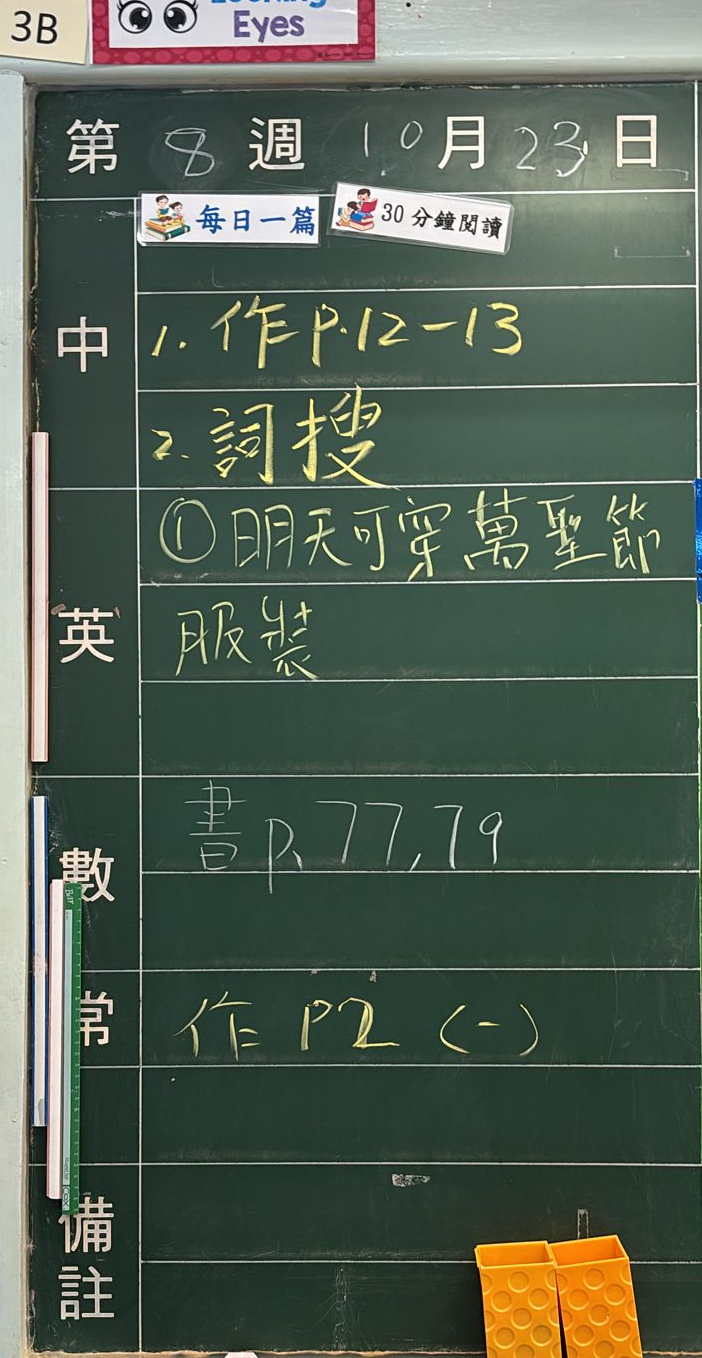 3B
Looking
Eyes
第 8 週 10月23日
每日一篇 30分鐘閱讀
中 1. 作P.12-13
2. 詞搜
①明天可穿萬聖節
英 服裝
數 書p.77,79
常 作P2(一)
備
註